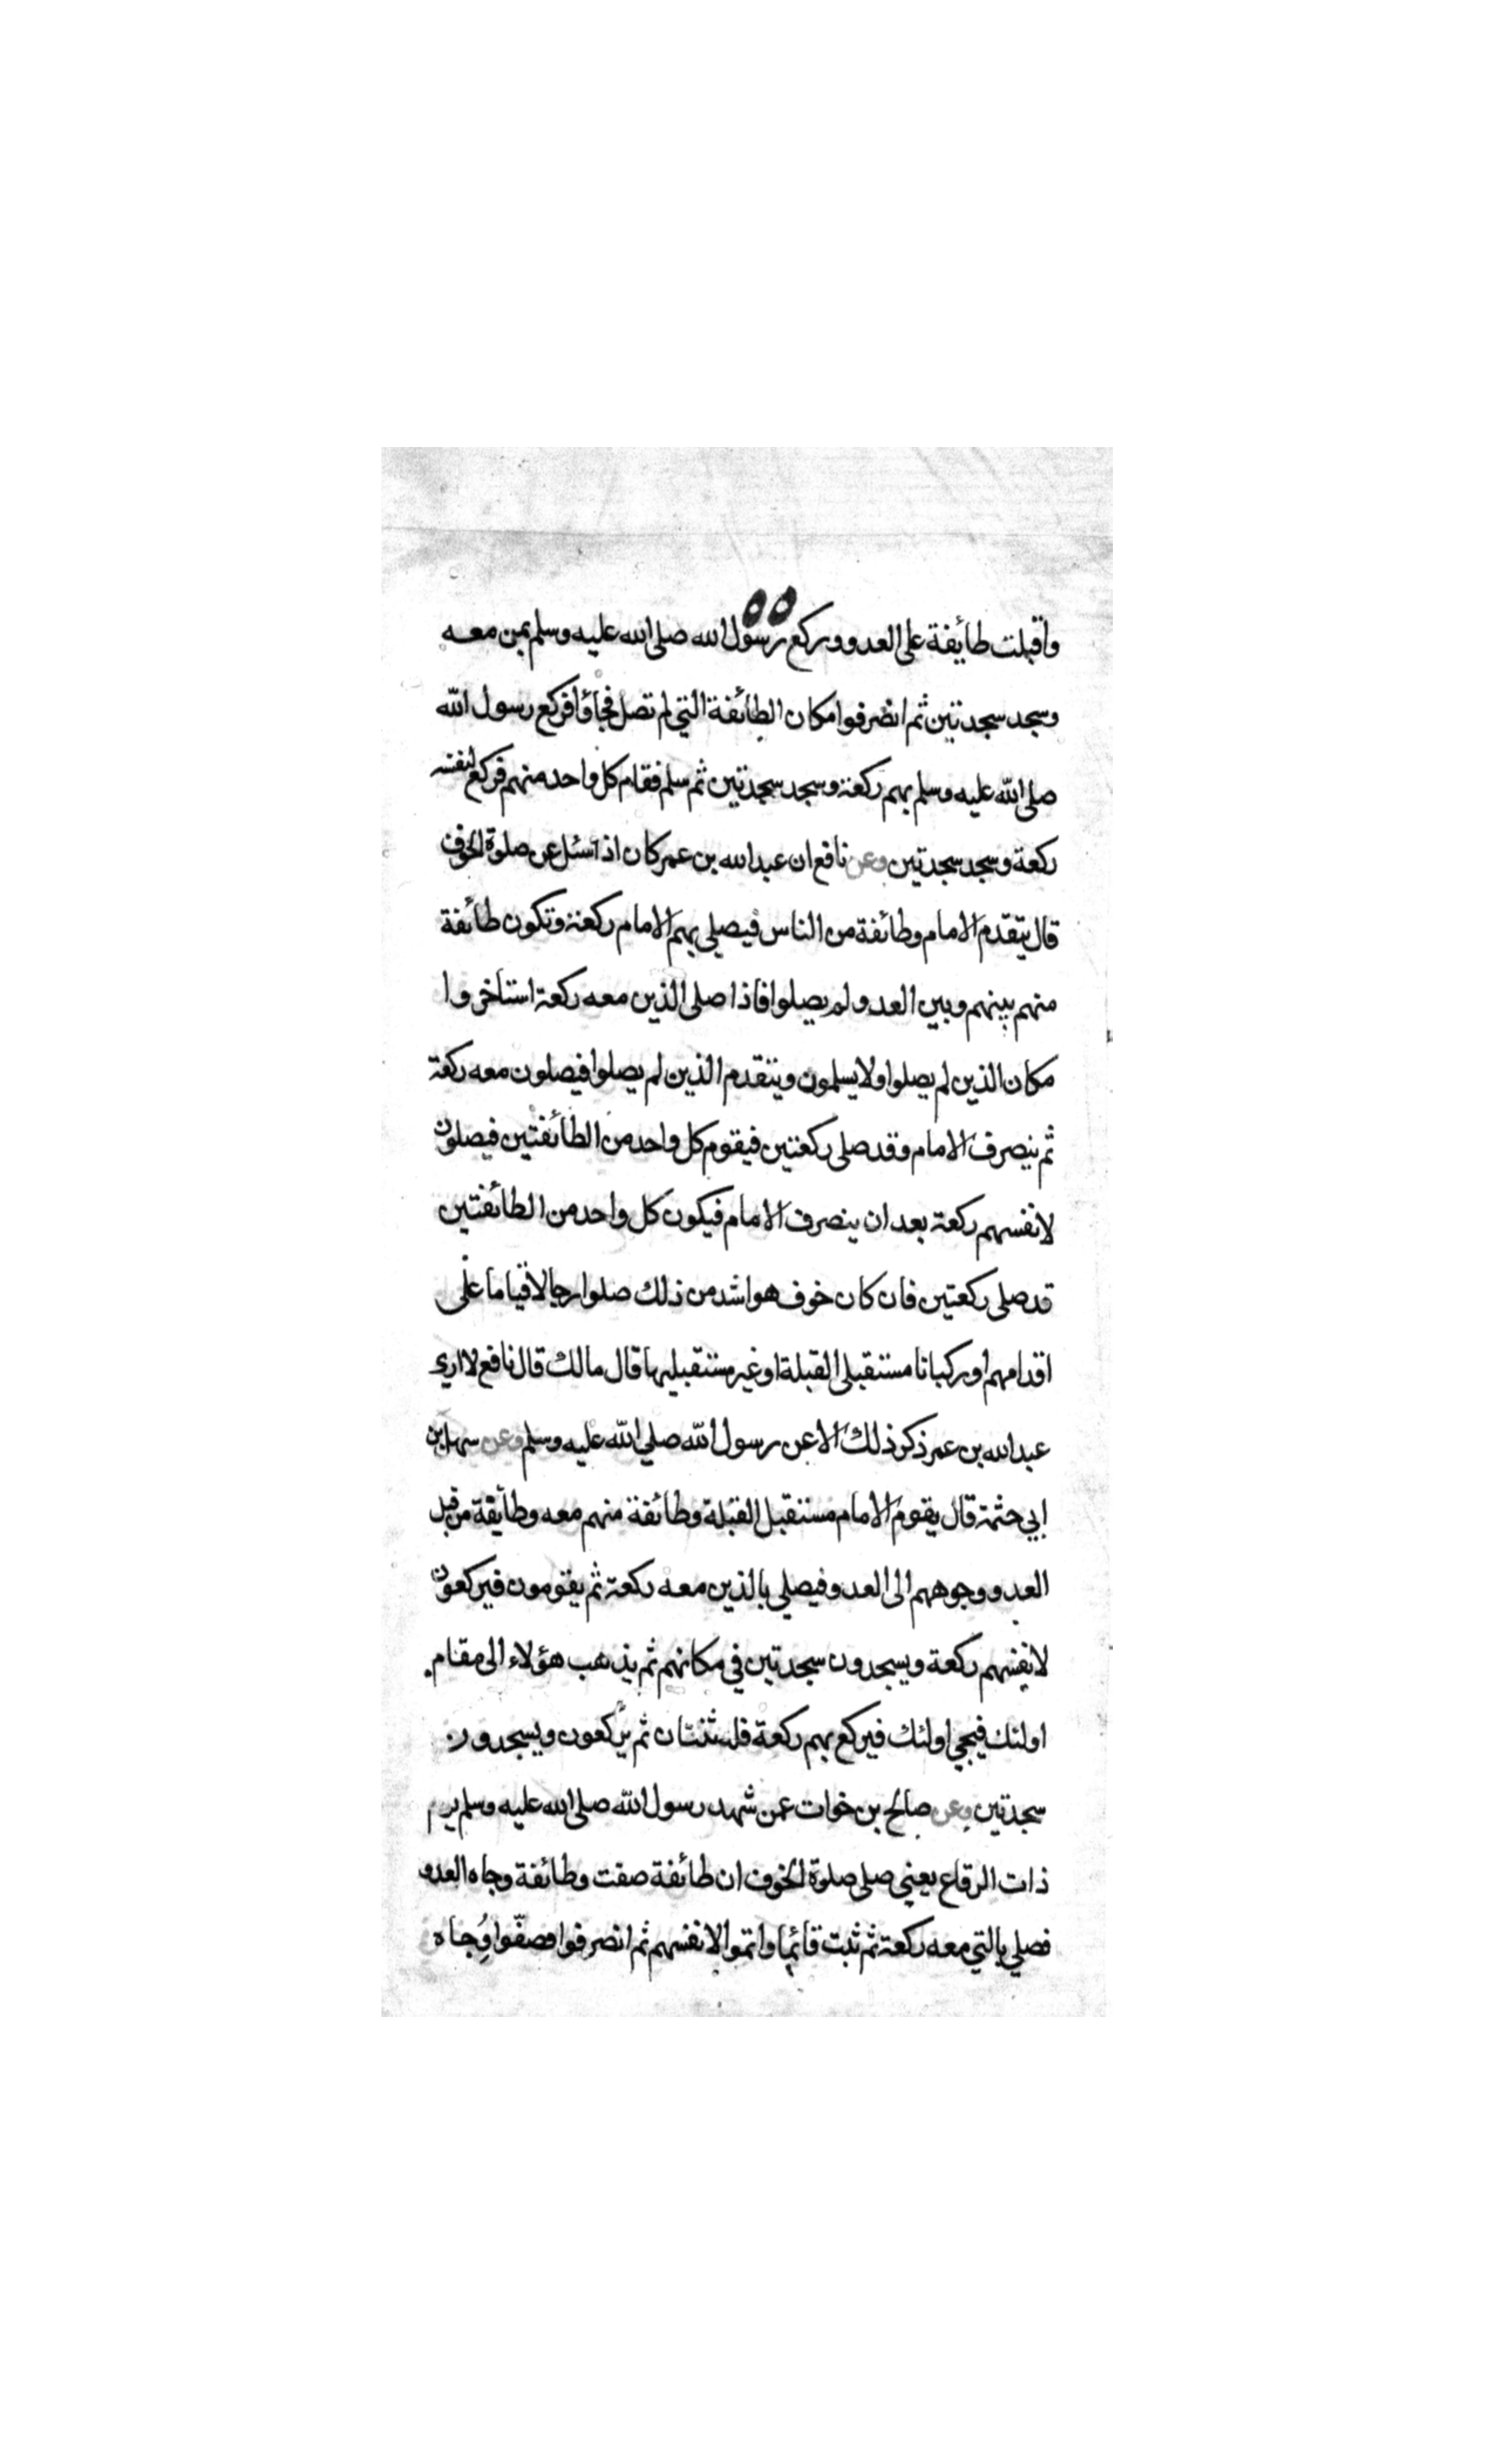 واقبلت طائفة على العدو وركع رسول الله صلى الله عليه وسلم بمن معه
وسجد سجدتين ثم انصرفوا مكان الطائفة التي لم تصل فجاؤا فركع رسول الله
صلى الله عليه وسلم بهم ركعة وسجد سجدتين ثم سلم فقام كل واحد منهم فركع لنفسه
ركعة وسجد سجدتين وعن نافع ان عبد الله بن عمر كان اذا سئل عن صلوة الخوف
قال يتقدم الامام وطائفة من الناس فيصلي بهم الامام ركعة وتكون طائفة
منهم بينهم وبين العدو ولم يصلوا فاذا صلى الذين معه ركعة استأخروا
مكان الذين لم يصلوا ولا يسلمون ويتقدم الذين لم يصلوا فيصلون معه ركعة
ثم ينصرف الامام وقد صلى ركعتين فيقوم كل واحد من الطائفتين فيصلون
لانفسهم ركعة بعد ان ينصرف الامام فيكون كل واحد من الطائفتين
قد صلى ركعتين فان كان خوف هو اشد من ذلك صلوا رجالا قياما على
اقدامهم او ركبانا مستقبلي القبلة او غير مستقبليها قال مالك قال نافع لا ارى
عبد الله بن عمر ذكر ذلك الا عن رسول الله صلي الله عليه وسلم وعن سهل بن
ابي حثمة قال يقوم الامام مستقبل القبلة وطائفة منهم معه وطائفة من قبل
العدو وجوههم الى العدو فيصلي بالذين معه ركعة ثم يقومون فيركعون
لانفسهم ركعة ويسجدون سجدتين في مكانهم ثم يذهب هؤلاء الى مقام
اولئك فيجي اولئك فيركع بهم ركعة فله ثنتان ثم يركعون ويسجدون
سجدتين وعن صالح بن خوات عمن شهد رسول الله صلى الله عليه وسلم يوم
ذات الرقاع يعني صلى صلوة الخوف ان طائفة صفت وطائفة وجاه العدو
فصلي بالتي معه ركعة ثم ثبت قائما واتموا لانفسهم ثم انصرفوا فصفّوا وُجاه